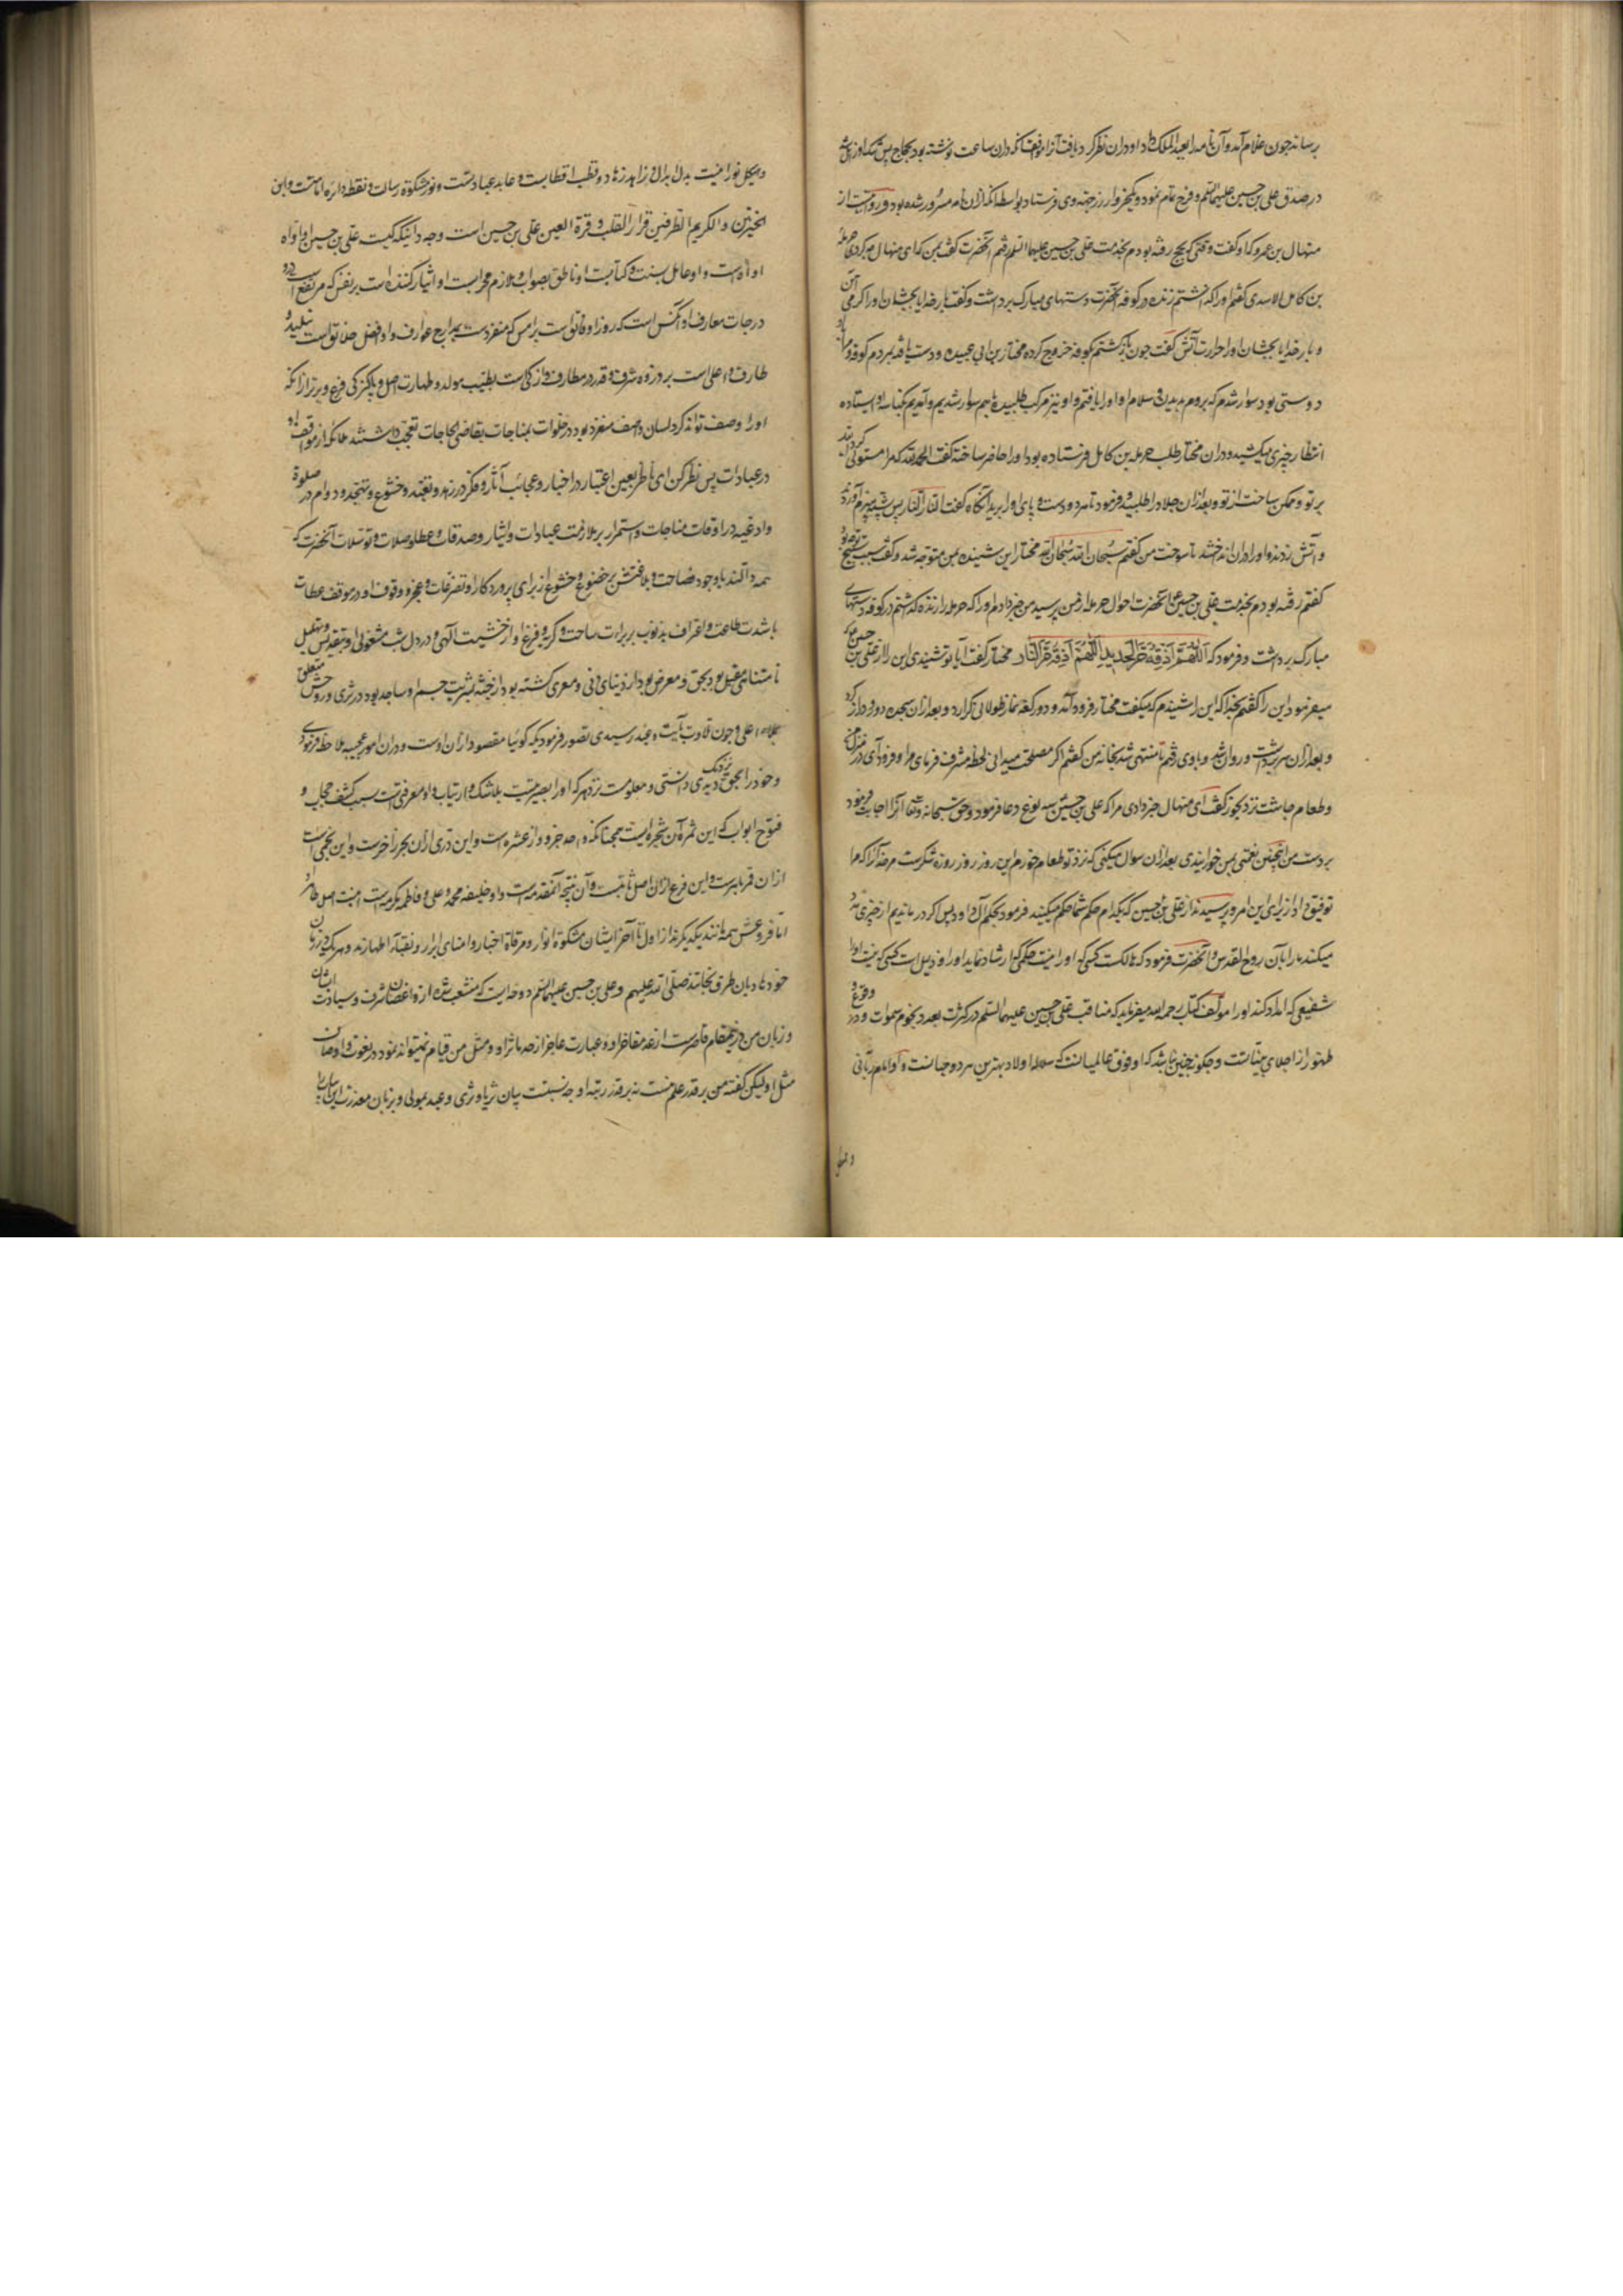 برساند چون غلام آمد و آن نامه را بعبد الملک داد او دران نظر کرد دریافت آنرا موافق آنکه دران ساعت نوشته بود بحجاج پس شک او زایل شد
در صدق علی بن حسین علیهما السلم و فرح تمام نمود و یکخروار زر بجهة وی فرستاد بواسطه آنکه ازان نامه مسرور شده بود و روایتست از
منهال بن عمرو که او گفت وقتی که بحج رفته بودم بخدمت علی بن حسین علیهما السلم رفتم آنحضرت گفت بمن که ای منهال چه کردی حرمله
بن کامل الاسدی گفتم او را که گذاشتم زنده در کوفه آنحضرت دستهای مبارک برداشت و گفت بار خدایا بچشان او را گرمی آهن
و بار خدایا بچشان او را حرارت آتش گفت چون بازگشتم بکوفه خروج کرده مختار بن ابی عبیده و دست یافته بمردم کوفه و مرا باو
دوستی بود سوار شدم که بروم بدیدن و سلام او او را یافتم و او نیز مرکب طلبیده باهم سوار شدیم و آمدیم بکناسه او ایستاده
انتظار چیزی میکشید و دران مختار طلب حرمله بن کامل فرستاده بود او را حاضر ساخته گفت الحمد لله که مرا مستولی گردانید
بر تو و ممکن ساخت از تو و بعد ازان جلاد را طلبید و فرمود تا هر دو دست و پای او را برید آنگاه گفت النار النار پس پشته هیزم آوردند
و آتش زدند و او را دران انداختند تا سوخت من گفتم سبحان الله سبحان الله مختار این شنیده بمن متوجه شد و گفت سبب تسبیح تو چه بود
گفتم رفته بودم بخدمت علی بن حسین ع آنحضرت احوال حرمله از من پرسید من خبر دادم او را که حرمله را زنده گذاشتم در کوفه دستهای
مبارک برداشت و فرمود که اللهم اذقه حر الحدید اللهم اذقه حر النار مختار گفت آیا تو شنیدی این را از علی بن حسین که
میفرمود این را گفتم بخدا که این را شنیدم که میگفت مختار فرود آمد و دو رکعت نماز طولانی گزارد و بعد ازان سجده دور و دراز کرد
و بعد ازان سر برداشت و روان شد و با وی رفتم تا منتهی شد بخانه من گفتم اگر مصلحت میدانی لحظه مشرف فرمای مرا و فرود آی در منزل من
و طعام چاشت نزد بخور گفت ای منهال خبر دادی مرا که علی بن حسین سه نوع دعا فرمود و حق سبحانه و تعالی آنرا اجابت فرمود
بر دست من اینچنین نعمتی بمن خورانیدی بعد ازان سوال میکنی که نزد تو طعام خورم این روز روز روزه شکرست مر خدا را که مرا
توفیق داد از برای این امر و پرسیدند از علی بن حسین که بکدام حکم شما حکم میکنید فرمود بحکم آل داود پس اگر درماندیم از چیزی تلقین
میکند ما را بآن روح القدس و آنحضرت فرمود که هالکست کسی که او را نیست حکیمی که ارشاد نماید او را و ذلیل است کسی که نیست او را
شفیعی که امداد کند او را مولف کتاب رحمه الله میفرماید که مناقب علی بن حسین علیهما السلم در کثرت بعدد نجوم سموت و در وقوع
ظهور از اجلای بینات است و چگونه چنین نباشد که او فوق عالمیانست که سلاله اولاد بهترین مردو جهانست و او امام ربانی
و هیکل نورانیت بدل ابدال و زاهد زهاد و قطب اقطابست و عابد عبادست و نور مشکوة رسالت و نقطه دایره امامت و ابن
الخیرتین و الکریم الطرفین قرار القلب و قرة العین علی بن حسین است و چه دانی که کیست علی بن حسین او اواه
اواه است و او عامل بسنت و کتابست او ناطق بصواب و ملازم محرابست او ایثار کننده است بر نفس که مرتفع است در
درجات معارف او آنکس است که روز او فائق است بر امس که منفردست ببدایع عوارف و او افضل خلائق است بتلید و
طارف و اعلی است بر ذروه شرف و قدر در مطارف و ازکی است بطیب مولد و طهارت اصل و پاکیزگی فرع و برتر از آنکه
او را وصف تواند کرد لسان واصف منفرد بود در خلوات بمناجات بقاضی الحاجات تعجب داشتند ملائکه از مواقف او
در عبادات پس نظر کن ای ناظر بعین اعتبار در اخبار و عجائب آثار و فکر در زهد و تعبد و خشوع و تهجد و دوام در صلوة
و ادعیه در اوقات مناجات و استمرار بر ملازمت عبادات و ایثار و صدقات و عطا و صلات و توسلات آنحضرت که
همه دالند با وجود فصاحت و بلاغتش بر خضوع و خشوع از برای پروردگار و تضرعات و عجز و وقوف او در موقف عصات
با شدت طاعت و اعتراف بذنوب بر براءت ساحت و گریه و فزع او از خشیت آلهی و در دل شب مشغولی او بتقدیس و تهلیل
نامتناهی مقبل بود بحق و معرض بود از دنیای دنی و معری گشته بود از جثه بشریت جسم او ساجد بود در ثری و روحش متعلق
بملاء اعلی و چون تلاوت بآیت وعید رسیدی تصور فرمودی که گوئیا مقصود ازان اوست و دران امور عجیبه ملاحظه فرمودی
و خود را بحق نزدیک دیدی دانستی و معلومست نزد هر که او را بصیرتیست بلاشک و ارتیاب و او معرفی است بسبب کشف حجاب و
فتوح ابواب که این ثمره آن شجره ایست همچنانکه واحد جزو از عشره است و این دری ازان بحر زاخرست و این نجمی است
ازان قمر باهر است و این فرع ازان اصل ثابتست و آن نتیجه آنمقدمه است و او خلیفه محمد و علی و فاطمه مکرمه است اینست اصل طاهر او
اما فروعش همه مانند یکدیگرند از اول تا آخر ایشان مشکوة انوار و مرقاة اخیار و امنای ابرار و نقبای اطهارند و هر یک در زمان
خود هادیان طرق نجاتند صلی الله علیهم و علی بن حسین علیهما السلم دوحه ایست که منشعب شده از و اغصان شرف و سیادت ایشان
و زبان من درینمقام قاصرست از عد مفاخر او و عبارت عاجز از حد ماثر او و مثل من قیام نمیتواند نمود در نعوت و اوصاف
مثل او لیکن گفته من بر قدر علم منست نه بر قدر رتبه او چه نسبتست میان ثریا و ثری و عبد بمولی و بزبان معذرت این ابیات